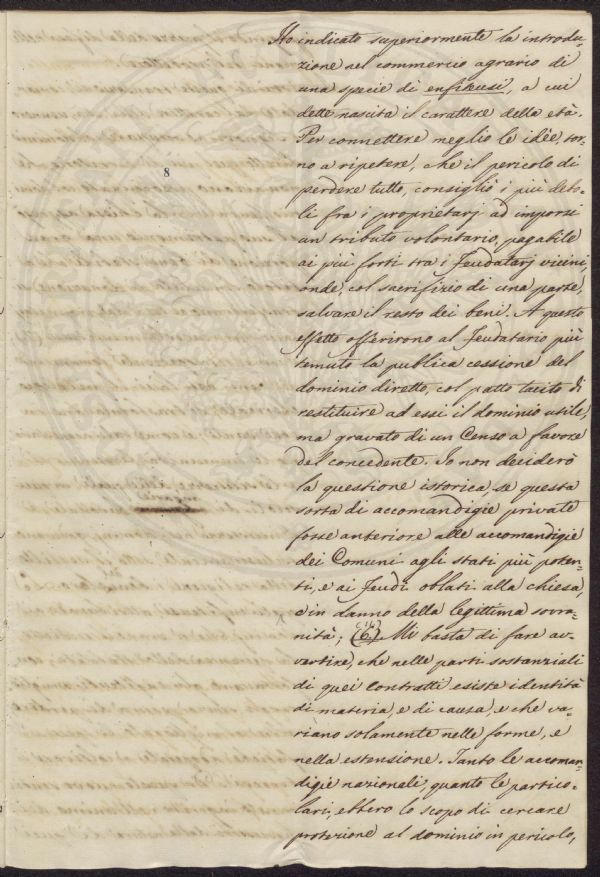 Ho indicato superiormente la introdu-
zione nel commercio agrario di
una specie di enfiteusi, a cui
dette nascita il carattere della età.
Per connettere meglio le idèe, tor-
no a ripetere, che il pericolo di
perdere tutto, consigliò i più debo-
li fra i proprietarj ad imporsi
un tributo volontario, pagabile
ai più forti tra i Feudatarj vicini,
onde, col sacrifizio di una parte,
salvare il resto dei beni. A questo
effetto offerirono al Feudatario più
temuto la publica cessione del
dominio diretto, col patto tacito di
restituire ad essi il dominio utile,
ma gravato di un Censo a favore
del concedente. Io non deciderò
la questione istorica, se questa
sorta di accomandigie private
fosse anteriore alle accomandigie
dei Comuni agli stati più poten-
ti, e ai Feudi oblati alla chiesa,
e in danno della legittima sovra-
nità; (6) Mi basta di fare av-
vertire, che nelle parti sostanziali
di quei contratti esiste identità
di materia, e di causa, e che va-
riano solamente nelle forme, e
nella estensione. Tanto le accoman-
digie nazionali, quanto le partico-
lari, ebbero lo scopo di cercare
protezione al dominio in pericolo,
8